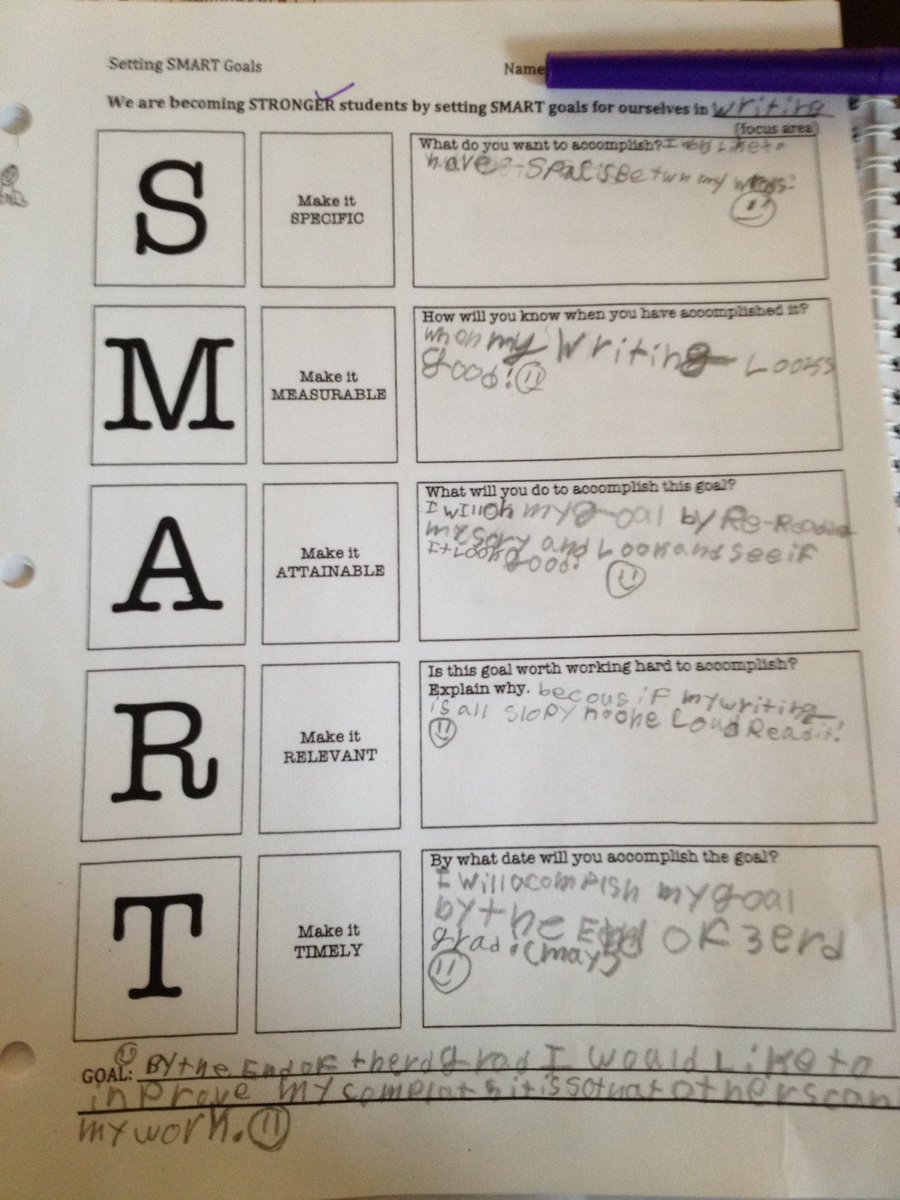 Setting SMART Goals
Name
We are becoming STRONGER students by setting SMART goals for ourselves in writing
(focus area)
S
Make it
SPECIFIC
What do you want to accomplish? I Like to
have Spacis Be twn my
M
Make it
MEASURABLE
How will you know when you have accomplished it?
when my Writing Looks
good!
A
Make it
ATTAINABLE
What will you do to accomplish this goal?
I will my goal by Re-Reade
my sory and Look and see if
It Look good!
R
Make it
RELEVANT
Is this goal worth working hard to accomplish?
Explain why. becous if my writing
is all slopy no one Coud Read it!
T
Make it
TIMELY
By what date will you accomplish the goal?
I will acomplsh my goal
by the End OF 3erd
grad. (may)
GOAL: By the End OF therd grad I would Like to
inprove my so that others can
my work.